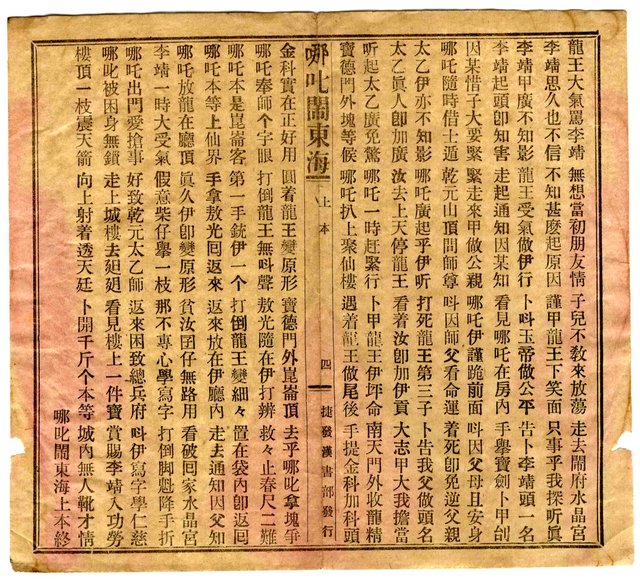 龍王大氣罵李靖 無想當初朋友情 子兒不敎來放蕩 走去鬧府水晶宮
李靖思久也不信 不知甚麼起原因 謹甲龍王下笑面 只事乎我探听眞
李靖甲廣不知影 龍王受氣做伊行 卜呌玉帝做公平 告卜李靖頭一名
李靖起頭卽知害 走起通知因某知 看見哪吒在房內 手舉寶劍卜甲刣
因某惜子大要緊 緊走來甲做公親 哪吒伊謹跪前面 呌因父母且安身
哪吒隨時借士遁 乾元山頂問師尊 呌因師父看命運 着死卽免逆父母
太乙伊亦不知影 哪吒廣起乎伊听 打死龍王第三子 卜告我父做頭名
太乙眞人卽加廣 汝去上天停龍王 看着汝卽加伊貢 大志甲大我擔當
听起太乙廣免驚 哪吒一時赶緊行 卜甲龍王伊坪命 南天門外收龍精
寶德門外塊等候 哪吒扒上聚仙樓 遇着龍王做尾後 手提金科加科頭
哪叱鬧東海 上本 四 捷發漢書部發行
金科實在正好用 圓着龍王變原形 寶德門外崑崙頂 去乎哪叱拿塊爭
哪吒奉師个字眼 打倒龍王無呌聲 敖光隨在伊打辨 救々止春尺二難
哪吒本是崑崙客 第一手銃伊一个 打倒龍王變細々 置在袋內卽返囘
哪吒本等上仙界 手拿敖光囘返來 返來放在伊廳內 走去通知因父知
哪吒放龍在廳頂 眞久伊卽變原形 貧汝囝仔無路用 看破回家水晶宮
李靖一時大受氣 假意柴仔舉一枝 那不專心學寫字 打倒脚魁降手折
哪吒出門愛搶事 好致乾元太乙師 返來困致總兵府 呌伊寫字學仁慈
哪叱被困身無鎖 走上城樓去廻廻 看見樓上一件寶 賞賜李靖入功勞
樓頂一枝震天箭 向上射着透天廷 卜開千斤个本等 城內無人靴才情
哪叱鬧東海上本終